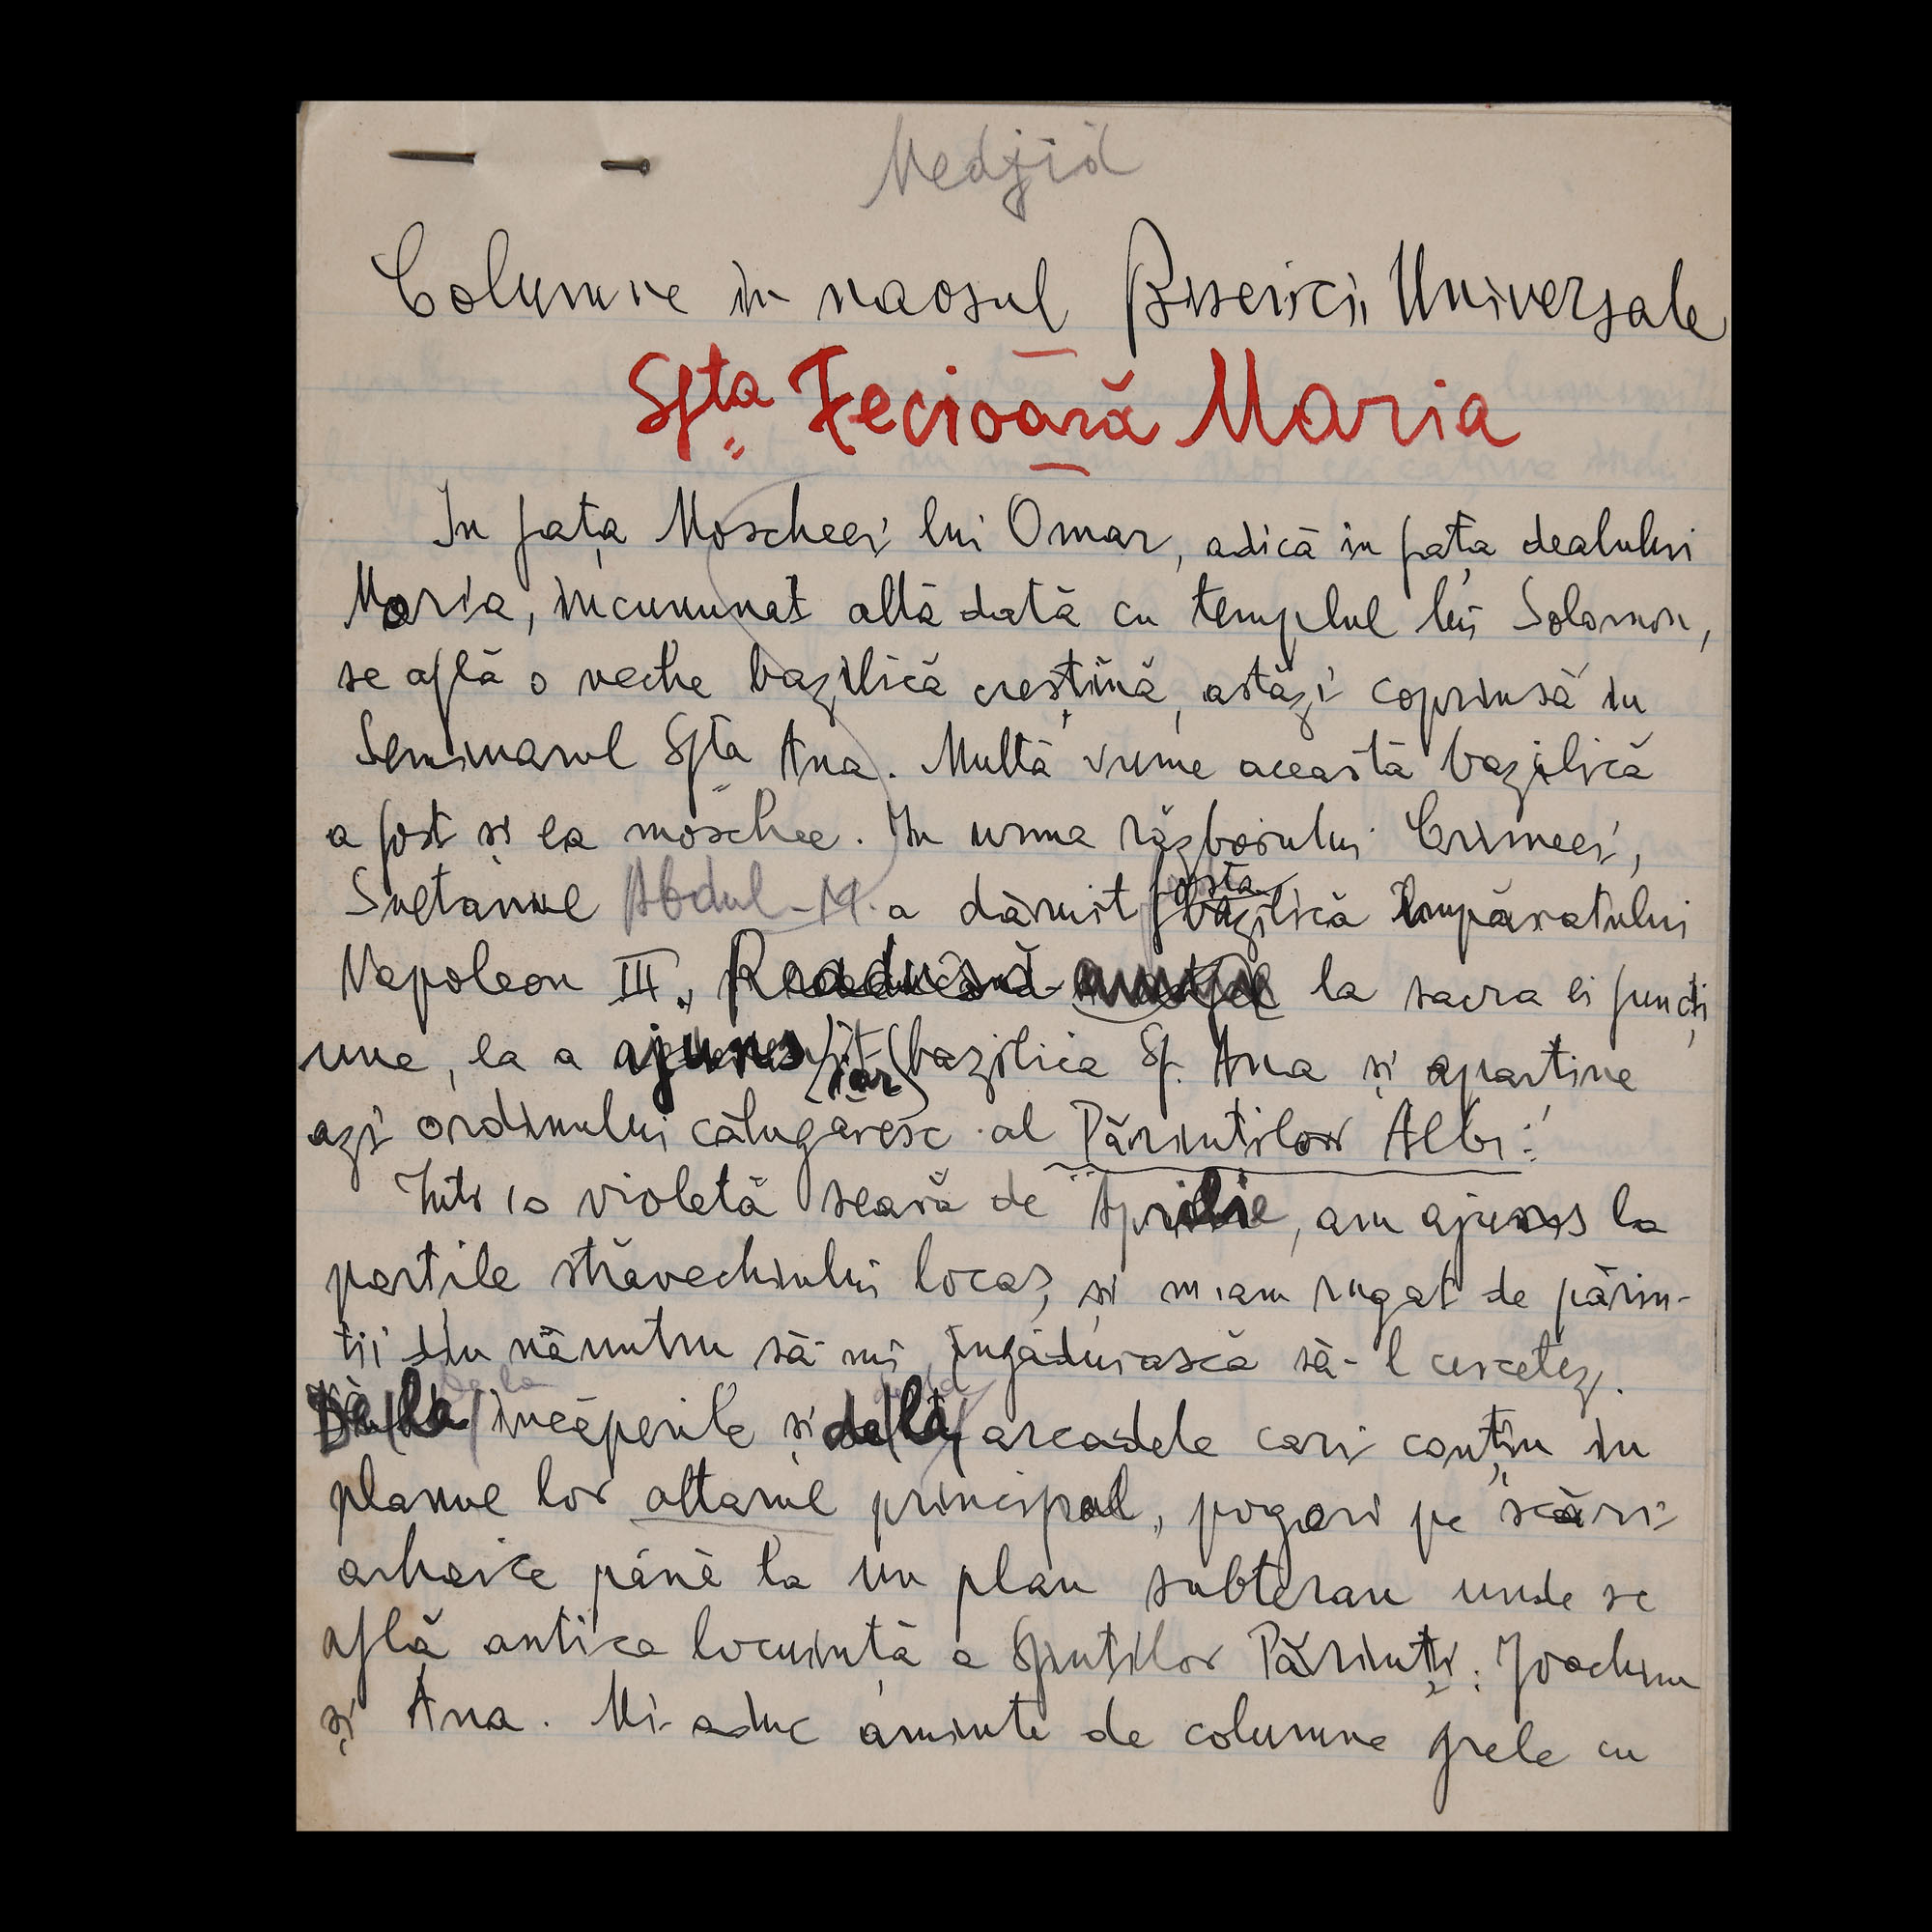 Medjid
Columne in naosul Bisericii Universale
Sfta Fecioară Maria
In fața Moscheei lui Omar, adică in fața dealului
Moria, incununat altă dată cu templul lui Solomon,
se află o veche bazilică creștină, astăzi coprinsă in
Seminarul Sfta Ana. Multă vreme această bazilică
a fost și ea moschee. In urma războiului Crimeei,
Sultanul Abdul-M. a dăruit fosta bazilică Impăratului
Napoleon III., Readusă astfel la sacra ei funcți
une, ea a ajuns iar bazilica Sf. Ana și aparține
azi ordinului călugăresc al Părintilor Albi.
Intr'o violetă seară de Aprilie, am ajuns la
porțile străvechiului locaș, și m'am rugat de părin-
tii din năuntru să-mi ingăduiască să-l cercetez.
De la incăperile și dela arcadele cari conțin in
planul lor altarul principal, pogori pe scări
arhaice până la un plan subteran unde se
află antica locuință a Sfintilor Părinți: Joachim
și Ana. Mi-aduc aminte de columne grele cu